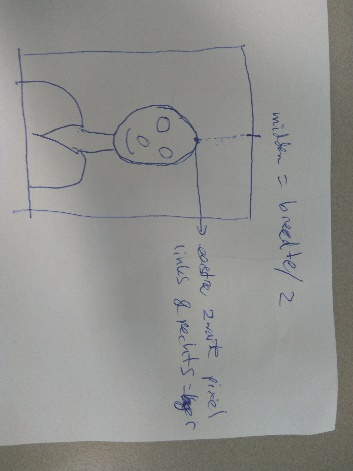 midden = breedte/2
eerste zwarte pixel
links & rechts =